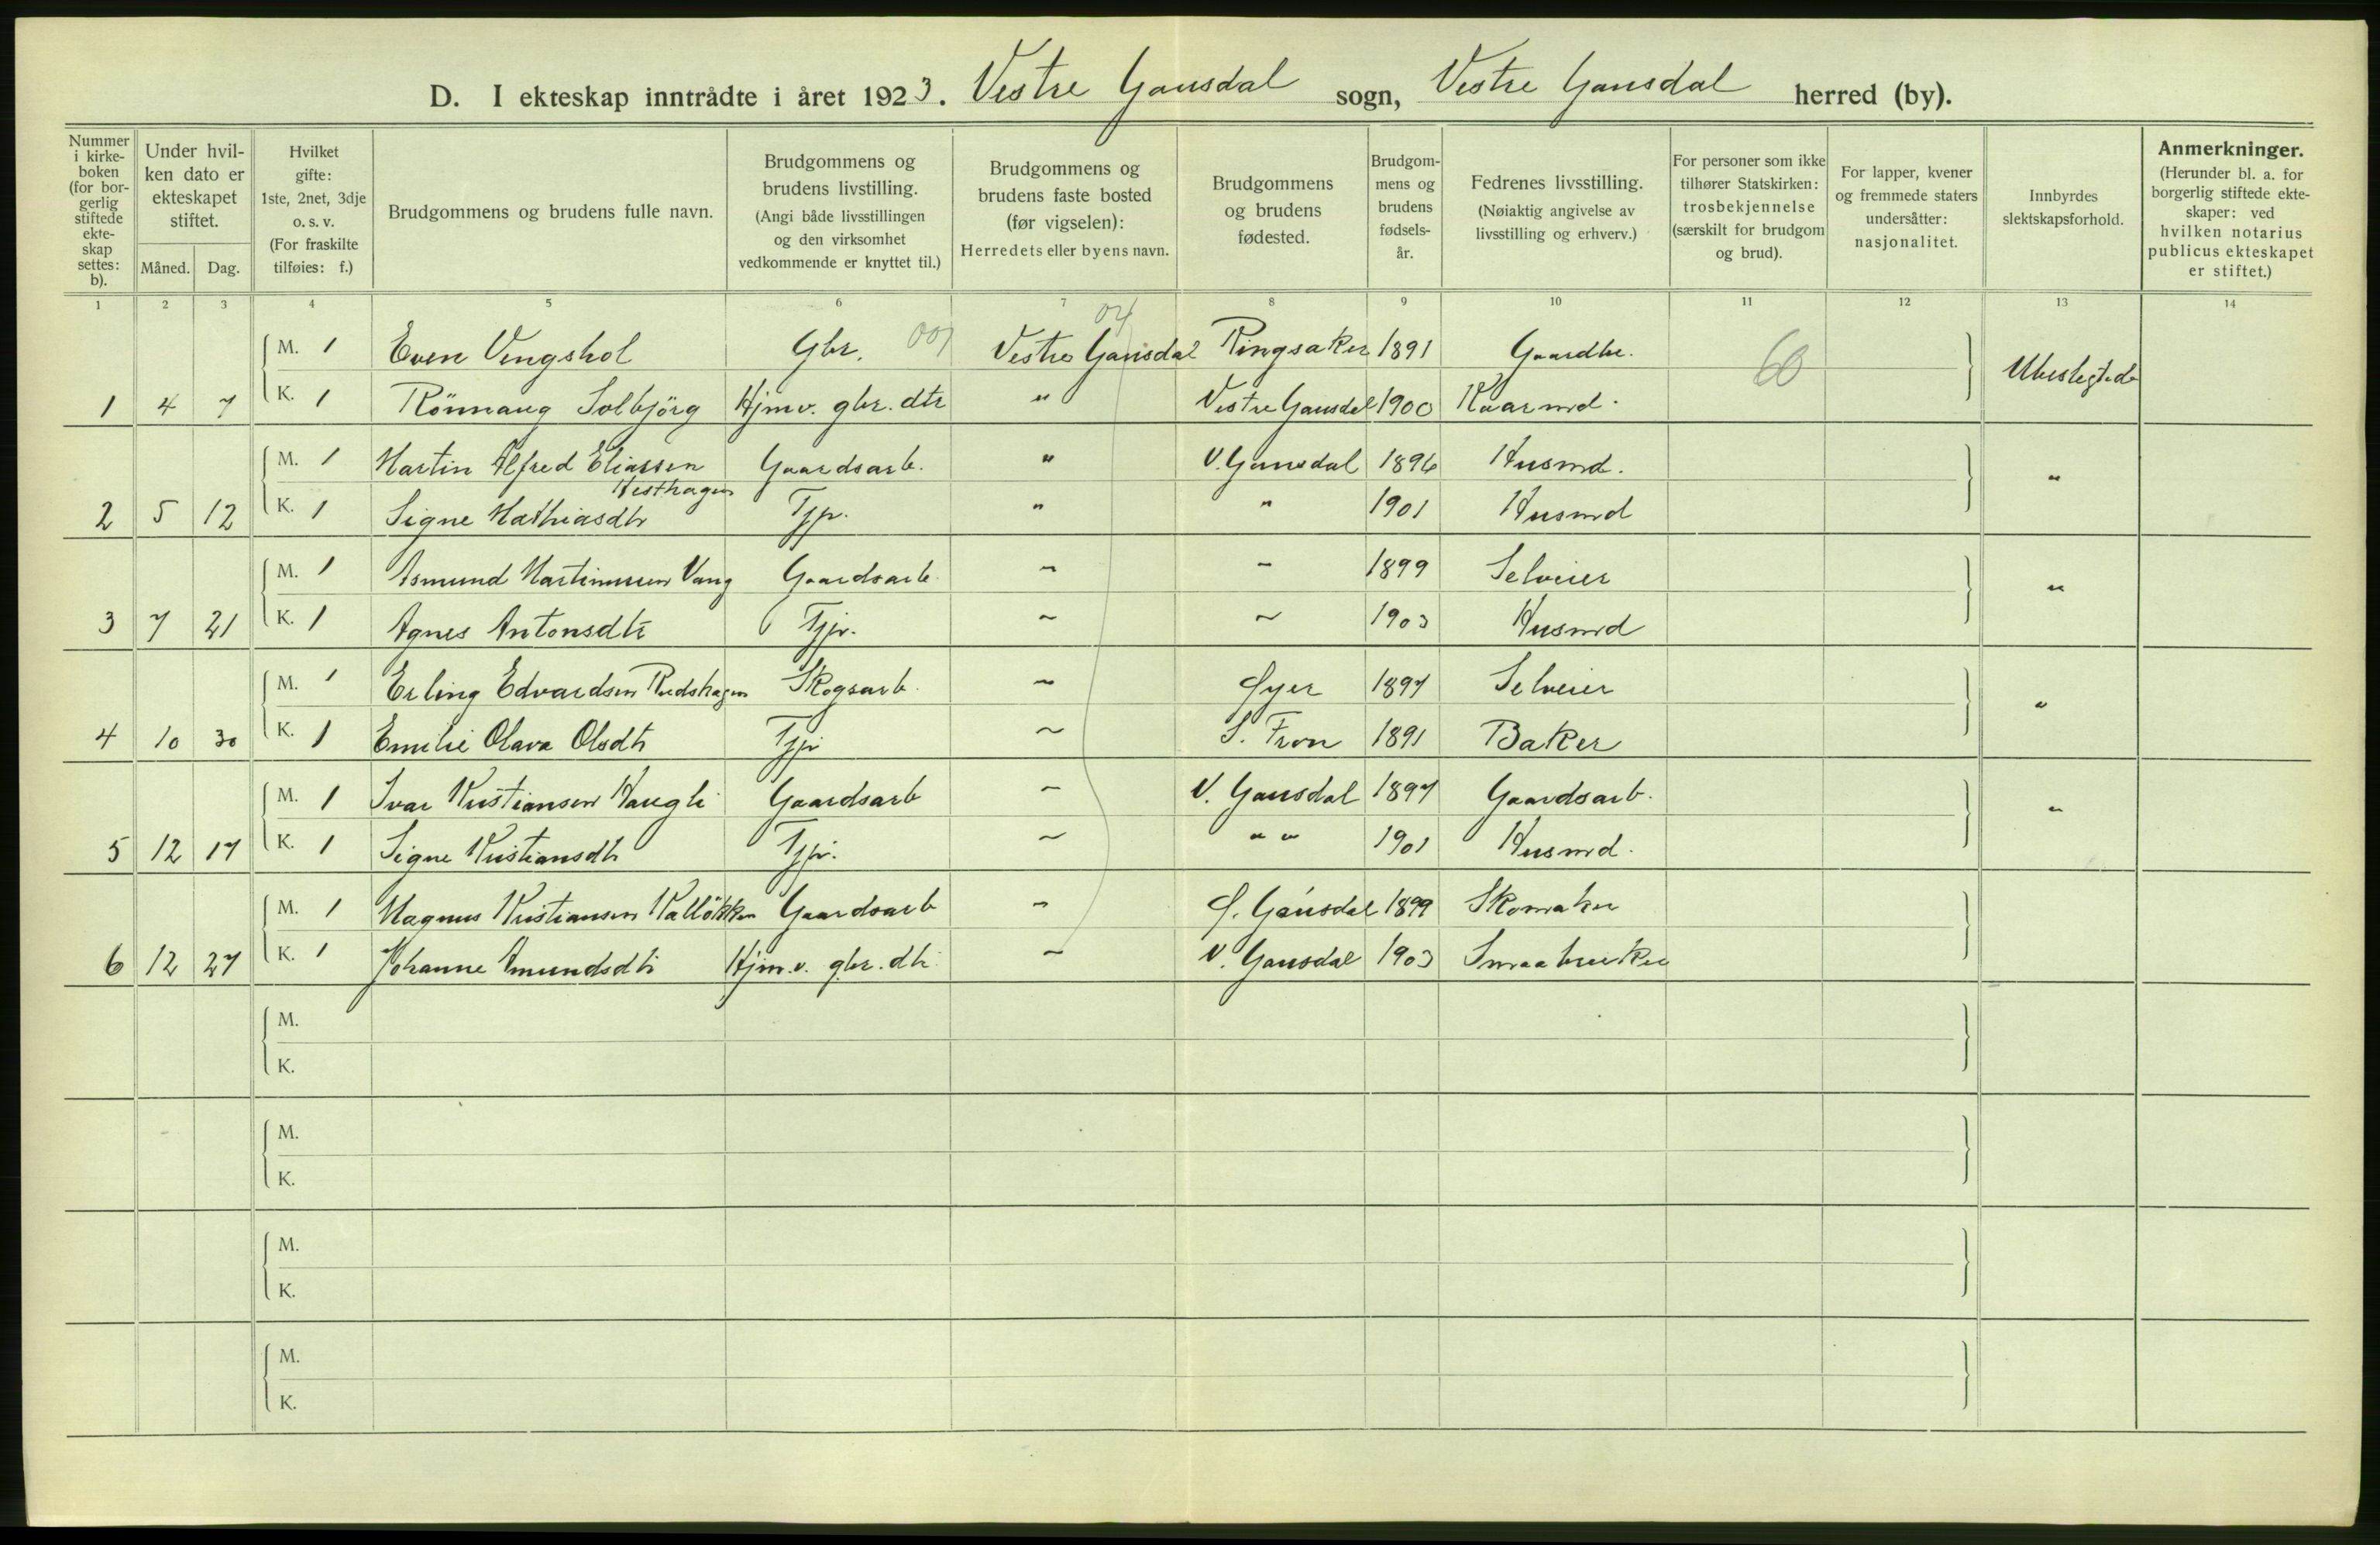 D. I ekteskap inntrådte i året 1923. Vestre Gausdal sogn, Vestre Gausdal herred (by).
Nummer i kirke-boken (for bor-gerlig stiftede ekte-skap settes: b).
Under hvil-ken dato er ekteskapet stiftet.
Måned. Dag.
Hvilket gifte: 1ste, 2net, 3dje o. s. v. (For fraskilte tilføies: f.)
Brudgommens og brudens fulle navn.
Brudgommens og brudens livstilling. (Angi både livsstillingen og den virksomhet vedkommende er knyttet til.)
Brudgommens og brudens faste bosted (før vigselen): Herredets eller byens navn.
Brudgommens og brudens fødested.
Brudgom-mens og brudens fødsels-år.
Fedrenes livsstilling. (Nøiaktig angivelse av livsstilling og erhverv.)
For personer som ikke tilhører Statskirken: trosbekjennelse (særskilt for brudgom og brud).
For lapper, kvener og fremmede staters undersåtter: nasjonalitet.
Innbyrdes slektskapsforhold.
Anmerkninger. (Herunder bl. a. for borgerlig stiftede ekte-skaper: ved hvilken notarius publicus ekteskapet er stiftet.)
1 2 3 4 5 6 7 8 9 10 11 12 13 14
M. 1 Even Vengshol Gbr. 001 Vestre Gausdal 04 Ringsaker 1891 Gaardbr. 60 Ubeslegtede
1 4 7 K. 1 Rönnaug Solbjörg Hjmv. gbr. dtr " Vestre Gausdal 1900 Kaarmd.
M. 1 Martin Alfred Eliassen Gaardsarb. " V. Gausdal 1896 Husmd. "
Hesthagen
2 5 12 K. 1 Signe Mathiasdtr Tjp. " " 1901 Husmd
M. 1 Asmund Martinussen Vang Gaardsarb. " " 1899 Selveier "
3 7 21 K. 1 Agnes Antonsdtr Tjp. " " 1903 Husmd
M. 1 Erling Edvardsen Rudshagen Skogsarb. " Øyer 1897 Selveier "
4 10 30 K. 1 Emilie Olava Olsdtr Tjp " S. Fron 1891 Baker
M. 1 Ivar Kristiansen Haugli Gaardsarb " V. Gausdal 1897 Gaardsarb. "
5 12 17 K. 1 Signe Kristiansdtr Tjp. " " " 1901 Husmd.
M. 1 Magnus Kristiansen Kalløkken Gaardsarb " Ø. Gausdal 1899 Skomaker
6 12 27 K. 1 Johanne Amundsdtr Hjm.v. gbr. dtr. " V. Gausdal 1903 Smaabruker
M.
K.
M.
K.
M.
K.
M.
K.